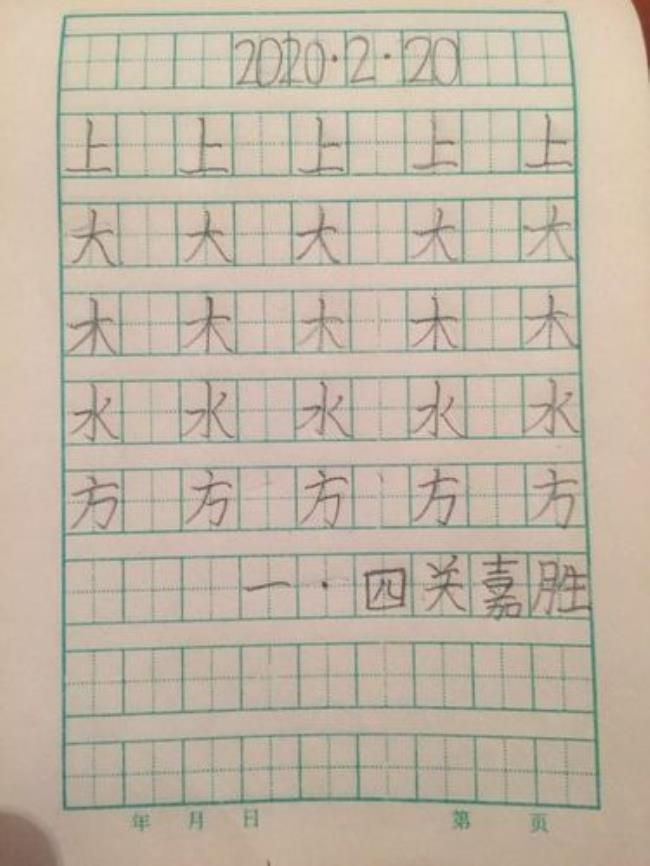 2020·2·20
上 上 上 上 上
大 大 大 大 大
木 木 木 木 木
水 水 水 水 水
方 方 方 方 方
一·四关嘉胜
年 月 日 第 页